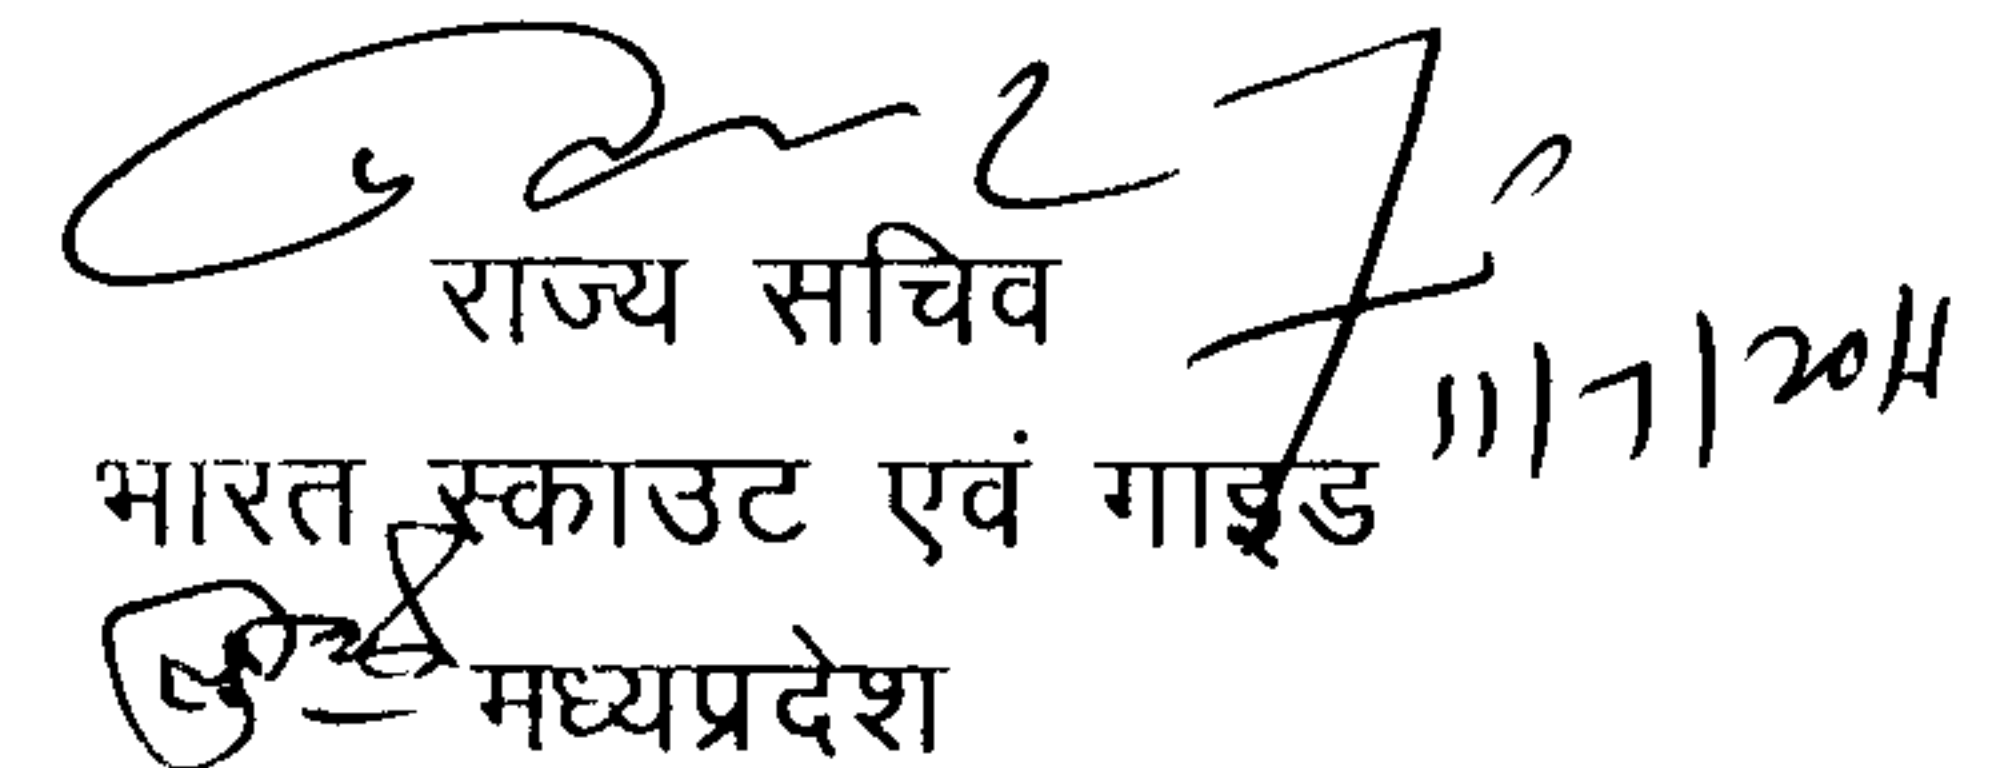 राज्य सचिव
11/7/2011
भारत स्काउट एवं गाइड
मध्यप्रदेश